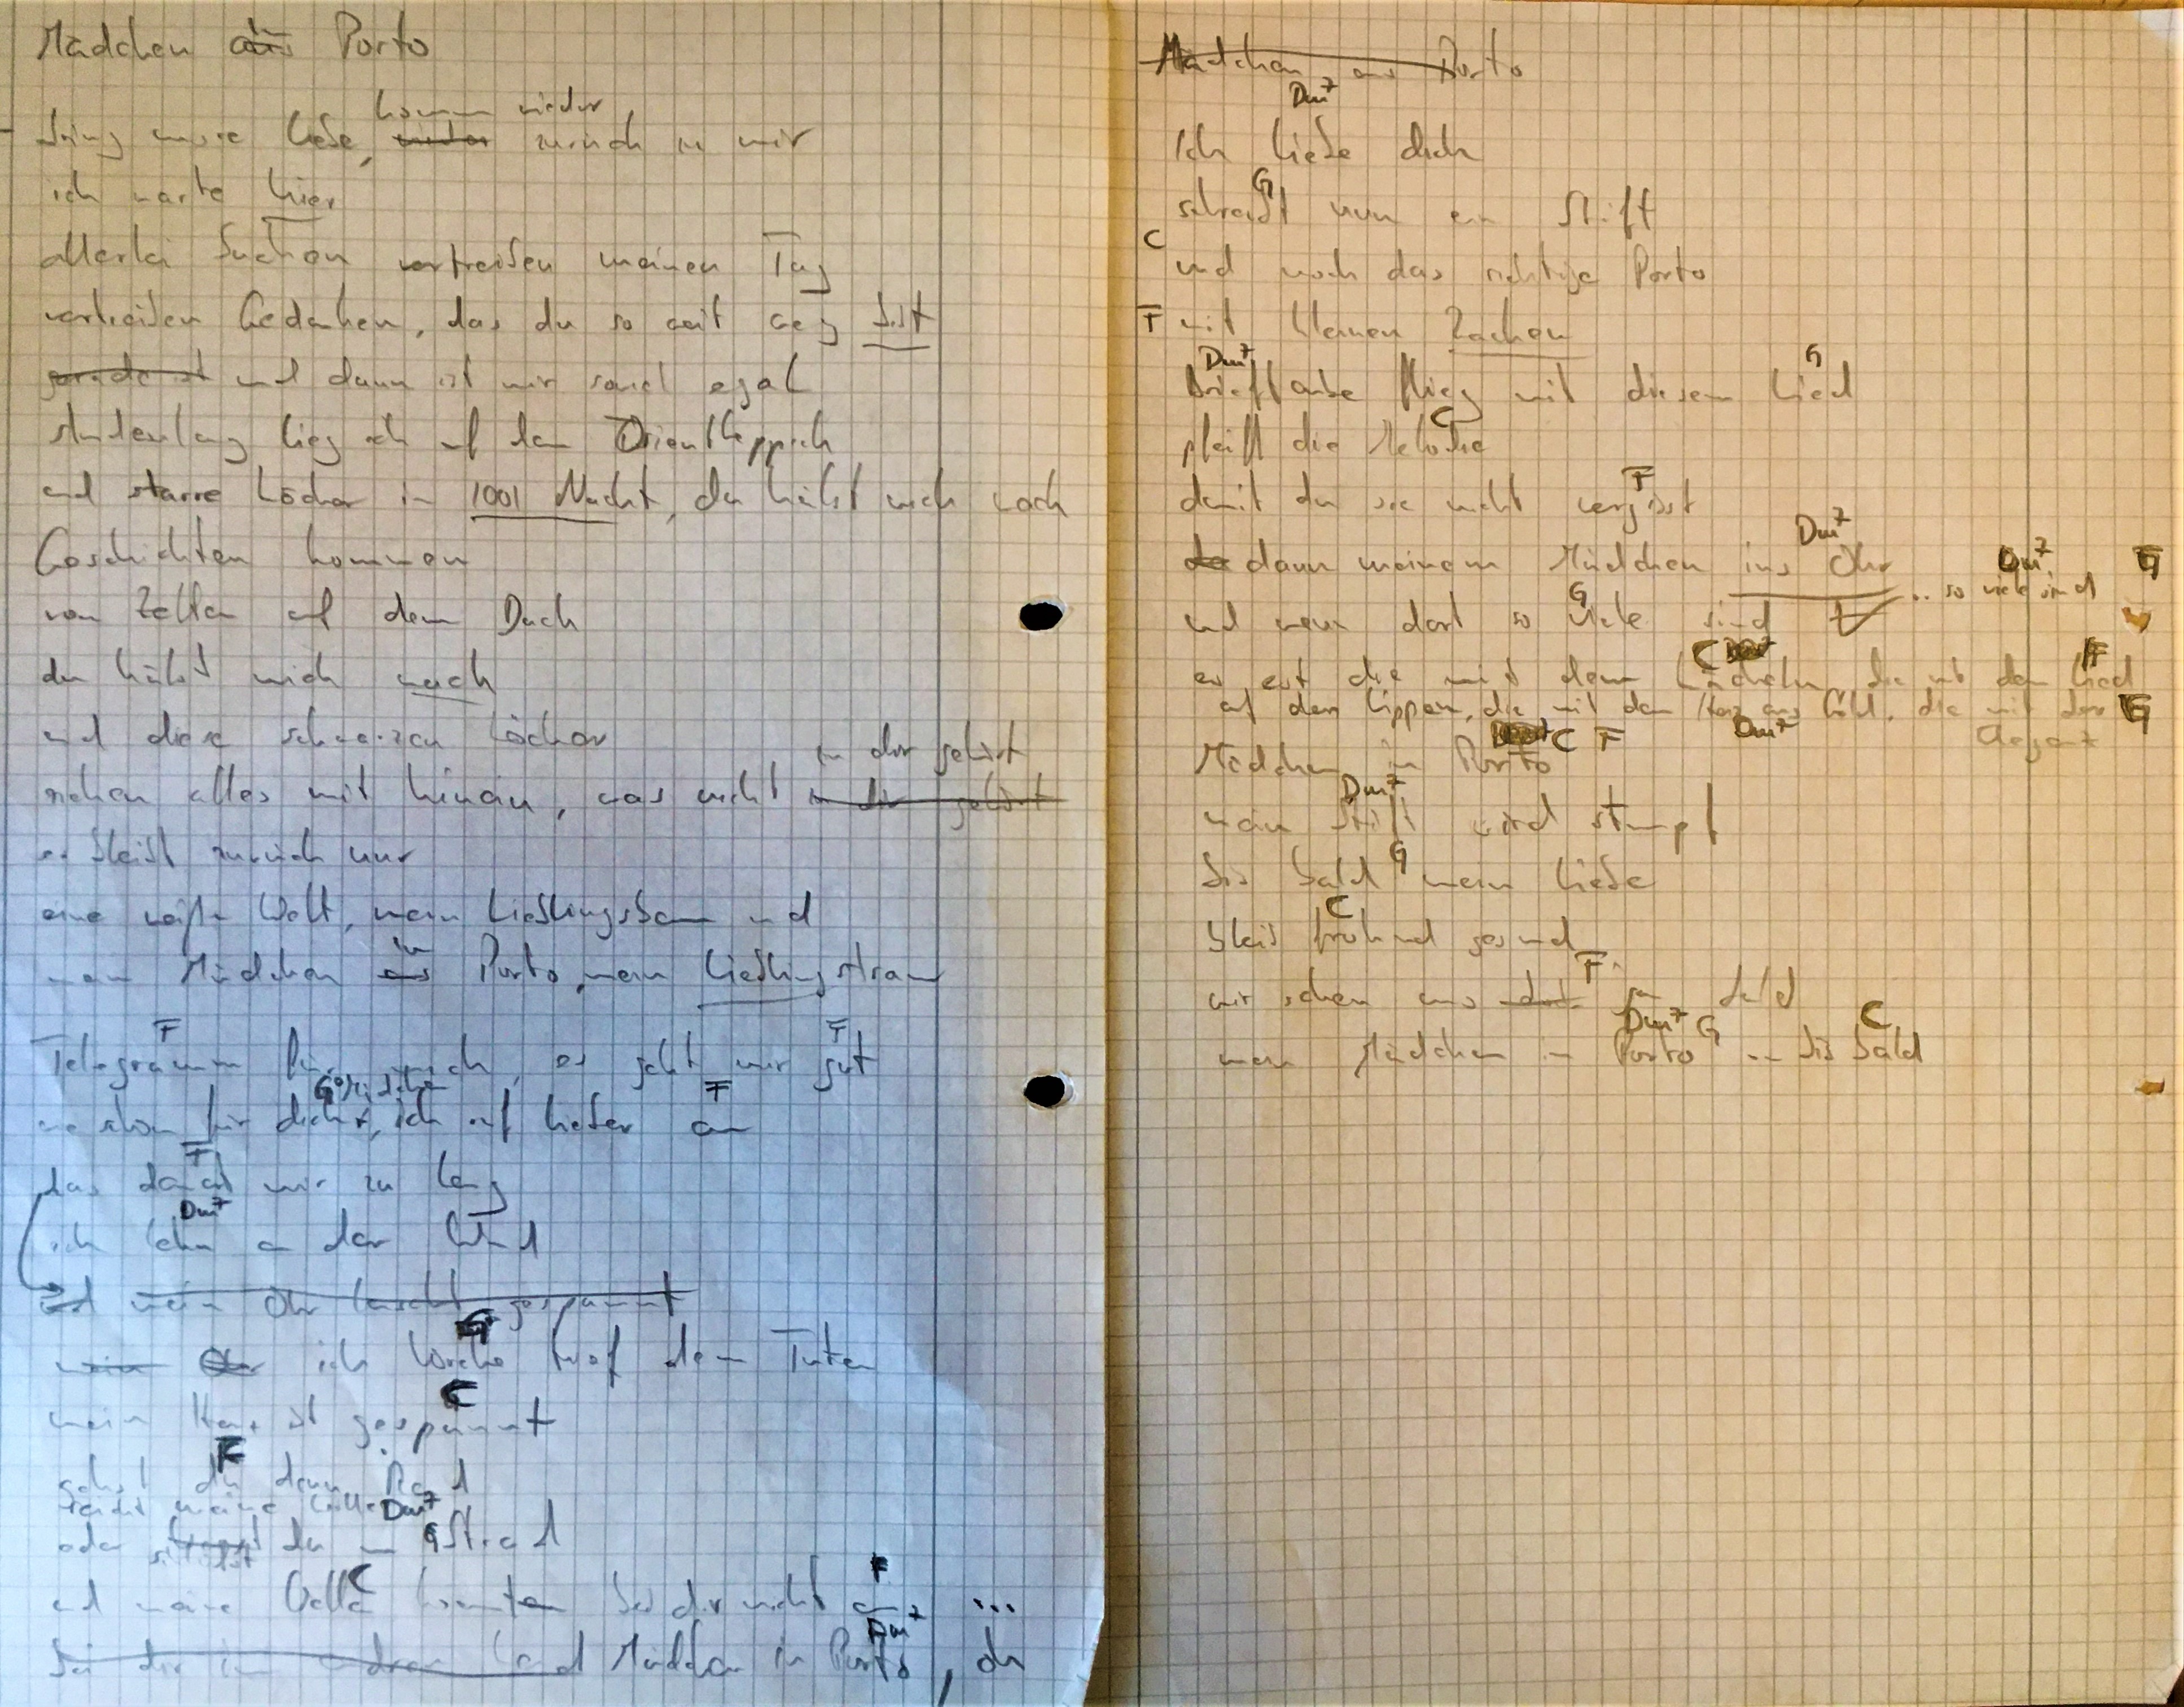 Mädchen aus in Porto
komm wieder
bring unsre Liebe, wieder zurück zu mir
ich warte hier
allerlei Sachen vertreiben meinen Tag
vertreiben Gedanken, das du so weit weg bist
gerade ist und dann ist mir soviel egal
stundenlang lieg ich auf dem Orientteppich
und starre Löcher in 1001 Nacht, du hälst mich wach
Geschichten kommen
von Zetteln auf dem Dach
du hälst mich wach
und diese schwarzen Löcher
zu dir gehört
ziehen alles mit hinein, was nicht zu dir gehört
es bleibt zurück nur
eine weiße Welt, mein Lieblingsbaum und
in
mein Mädchen aus Porto, mein Lieblingstraum
F F
Telegramm für mich, es geht mir gut
G F
wie schon für dich, ich ruf lieber an
F
das dauert mir zu lang
Dm7
ich lehn an der Wand
und mein Ohr lauscht gespannt
G
mein Ohr ich horche auf dem Tuten
C
mein Herz ist gespannt
F
gehst du denn Rand
reicht meine Dm7
oder du am G Strand
C F
und meine Welle kommten bei dir nicht an ...
Dm7
bei dir im andren Land Mädchen in Porto, oh
Mädchen aus Porto
Dm7
Ich liebe dich
G
schreibt nun ein Stift
C
und noch das richtige Porto
F mit kleinen Zacken
Dm7 G
Brieftaube flieg mit diesem Lied
C
pfeiff die Melodie
F
damit du sie nicht vergisst
Dm7 Dm7 G
da dann meinem Mädchen ins Ohr
.. so viele sind
G
und wenn dort so viele sind
C F
es ist die mit dem Lächeln, die mit dem Lied
auf den Lippen, die mit dem Herz aus Gold, die mit der G
C F Dm7 Eleganz
Mädchen in Porto
Dm7
mein Stift wird stumpf
G
bis bald mein Liebe
C
bleib froh und gesund
F
wir sehen uns dort ja bald
Dm7 G C
mein Mädchen in Porto ... bis bald